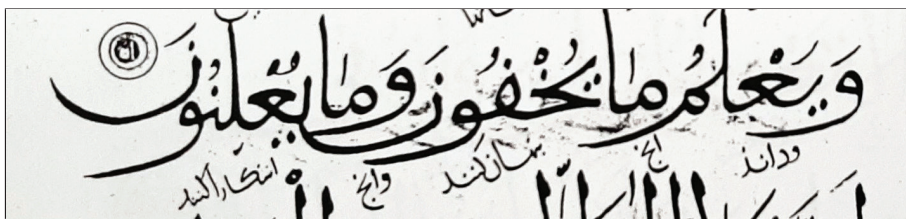 وَيَعْلَمُ مَا يُخْفُونَ وَمَا يُعْلِنُونَ
وداند انج بنهان کنند وانج اشکارا کنند